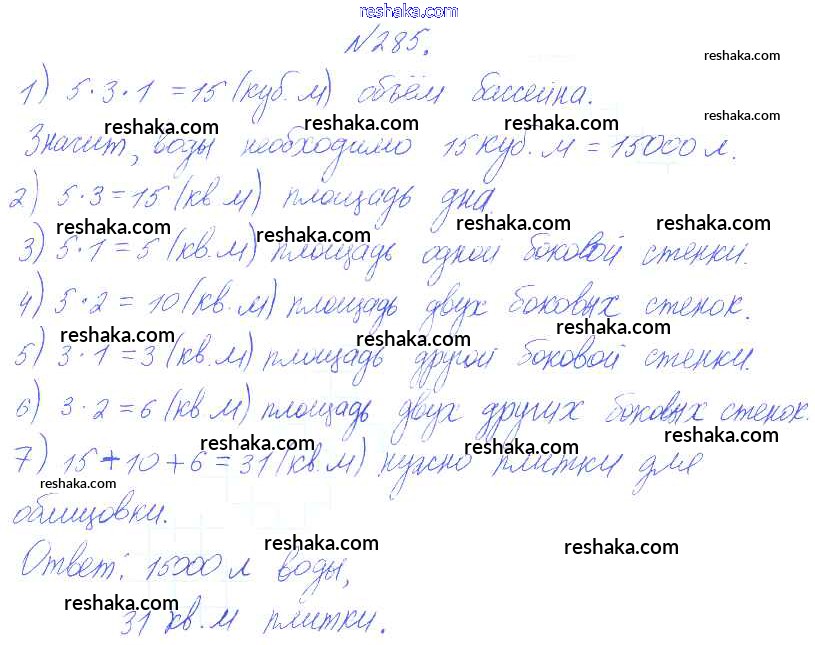 reshaka.com
№285.
reshaka.com
1) 5·3·1 = 15 (куб. м) объём бассейна.
reshaka.com reshaka.com reshaka.com reshaka.com
Значит, воды необходимо 15 куб. м = 15000 л.
2) 5·3 = 15 (кв м) площадь дна.
reshaka.com reshaka.com reshaka.com reshaka.com
3) 5·1 = 5 (кв. м) площадь одной боковой стенки.
4) 5·2 = 10 (кв. м) площадь двух боковых стенок.
reshaka.com reshaka.com reshaka.com
5) 3·1 = 3 (кв. м) площадь другой боковой стенки.
6) 3·2 = 6 (кв м) площадь двух других боковых стенок.
reshaka.com reshaka.com reshaka.com
7) 15 + 10 + 6 = 31 (кв. м) нужно плитки для
reshaka.com
облицовки.
reshaka.com reshaka.com
Ответ: 15000 л воды,
reshaka.com
31 кв. м плитки.